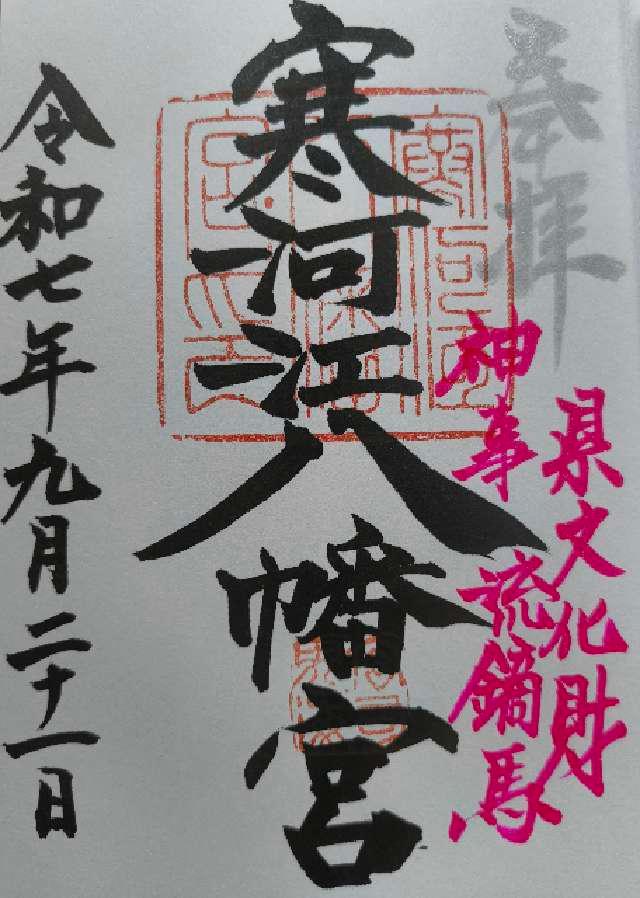 奉拝
県文化財
神事 流鏑馬
寒河江八幡宮
令和七年九月二十一日